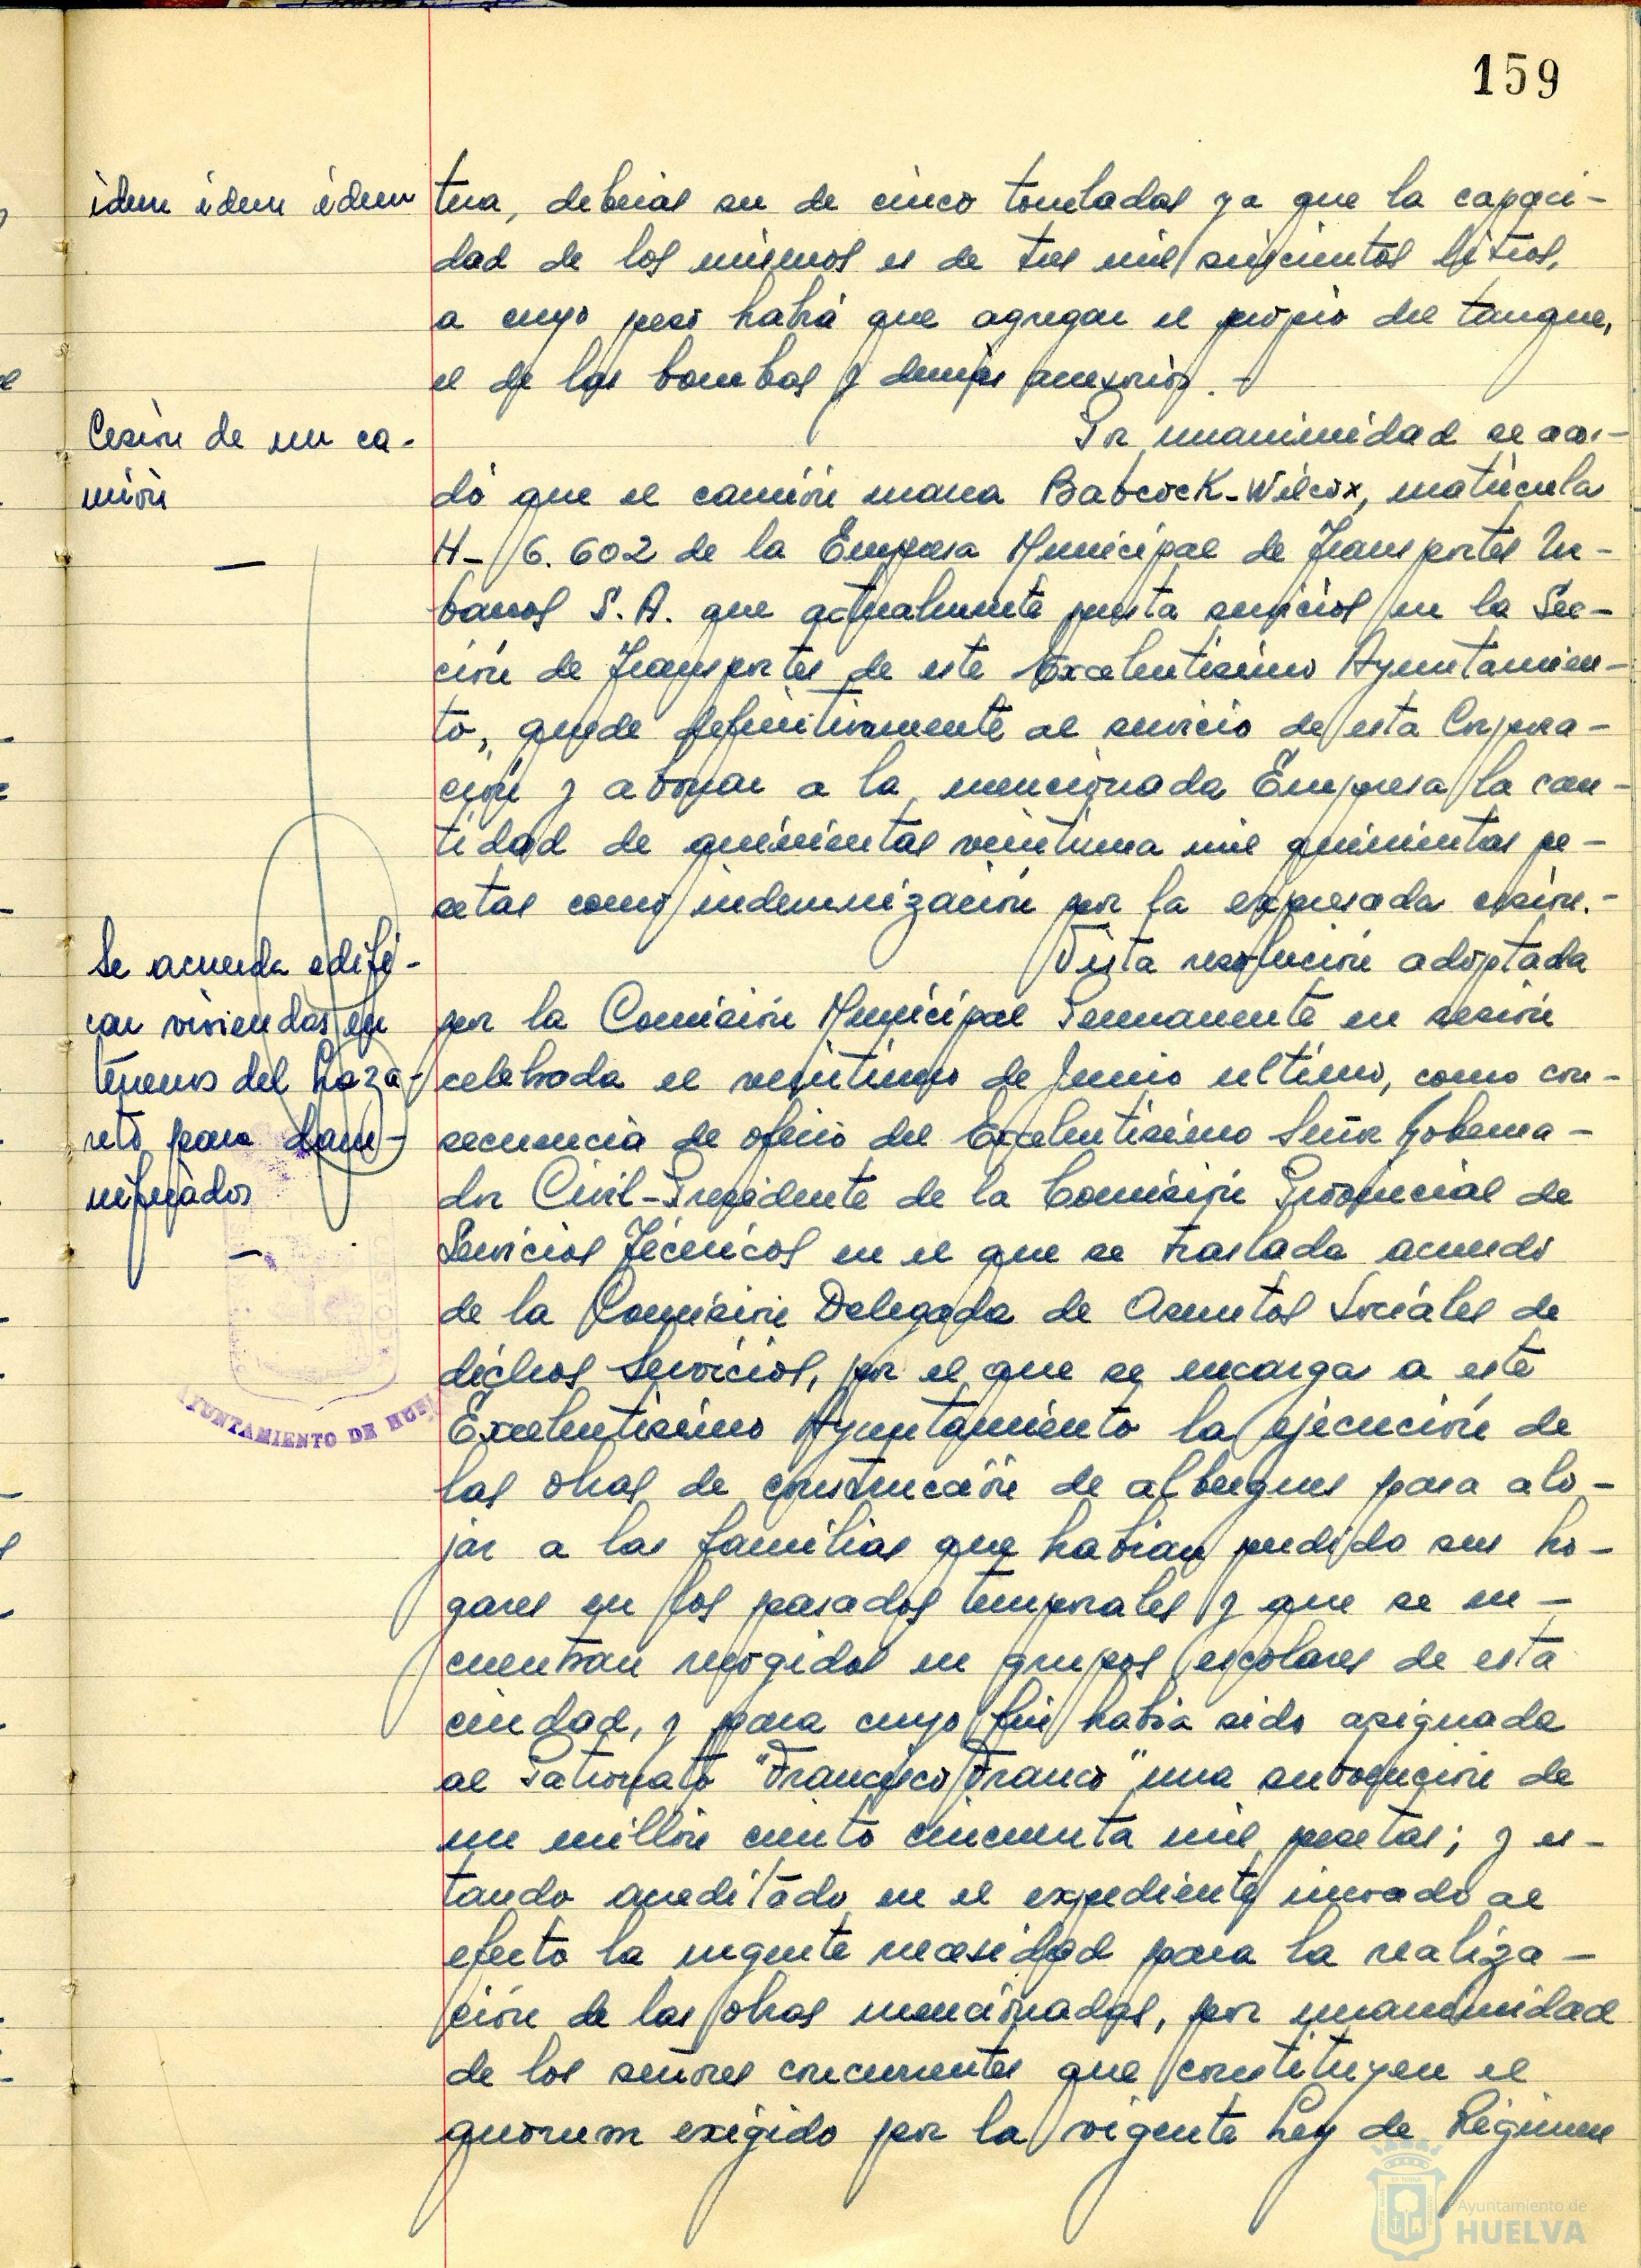 159
idem idem idem
tera, deberias ser de cinco toneladas ya que la capaci-
dad de los mismos es de tres mil seiscientos litros,
a cuyo peso habrá que agregar el propio del tanque,
el de las bombas y demás accesorios.-
Cesión de un ca-
mión
Por unanimidad se acor-
dó que el camión marca Babcock-Wilcox, matrícula
H-6.602 de la Empresa Municipal de Transportes Ur-
banos S.A. que actualmente presta servicios en la Sec-
ción de Transportes de este Excelentísimo Ayuntamien-
to, quede definitivamente al servicio de esta Corpora-
ción y abonar a la mencionada Empresa la can-
tidad de quinientas veintiuna mil quinientas pe-
setas como indemnización por la expresada cesión.-
Se acuerda edifi-
car viviendas en
terrenos del Laza-
reto para dam-
nificados
Vista resolución adoptada
por la Comisión Municipal Permanente en sesión
celebrada el veintiuno de Junio ultimo, como con-
secuencia de oficio del Excelentísimo Señor Goberna-
dor Civil-Presidente de la Comisión Provincial de
Servicios Técnicos en el que se traslada acuerdo
de la Comisión Delegada de Asuntos Sociales de
dichos Servicios, por el que se encarga a este
Excelentísimo Ayuntamiento la ejecución de
las obras de construcción de albergues para alo-
jar a las familias que habian perdido sus ho-
gares en los pasados temporales y que se en-
cuentran recogidas en grupos escolares de esta
ciudad, y para cuyo fin habia sido asignada
al Patronato "Francisco Franco" una subvención de
un millón ciento cincuenta mil pesetas; y es-
tando acreditado en el expediente incoado al
efecto la urgente necesidad para la realiza-
ción de las obras mencionadas, por unanimidad
de los señores concurrentes que constituyen el
quorum exigido por la vigente Ley de Régimen
AYUNTAMIENTO DE HUELVA
Ayuntamiento de
HUELVA